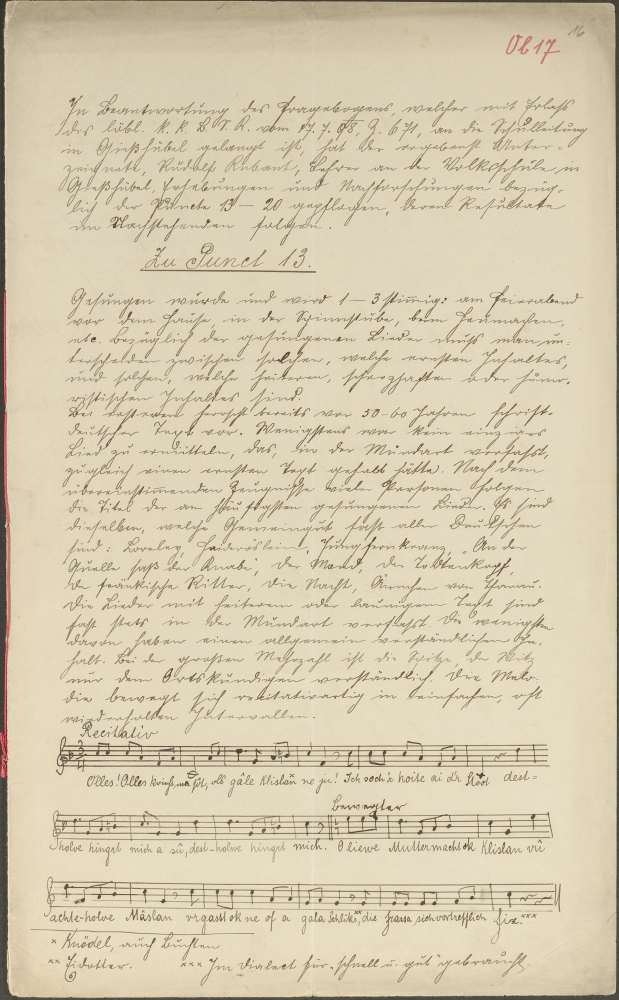 16
Ob 17
In Beantwortung des Fragebogens, welcher mit Erlaß
des löbl. k. k. B. S. R. vom 17. 7. 08, Z. 671, an die Schulleitung
in Gießhübel gelangt ist, hat der ergebenst Unter-
zeichnete, Rudolf Kubant, Lehrer an der Volksschule in
Gießhübel, Erhebungen und Nachforschungen bezüg-
lich der Puncte 13 – 20 gepflogen, deren Resultate
im Nachstehenden folgen.
Zu Punct 13.
Gesungen wurde und wird 1 – 3 stimmig: am Feierabend
vor dem Hause, in der Spinnstube, beim Heumachen,
etc. Bezüglich der gesungenen Lieder muß man un-
terscheiden zwischen solchen, welche ernsten Inhaltes,
und solchen, welche heiteren, scherzhaften oder humo-
ristischen Inhaltes sind.
Bei ersteren herrscht bereits vor 50–60 Jahren schrift-
deutscher Text vor. Wenigstens war kein einziges
Lied zu ermitteln, das, in der Mundart verfaßt,
zugleich einen ernsten Text gehabt hätte. Nach dem
übereinstimmenden Zeugnisse vieler Personen folgen
die Titel der am häufigsten gesungenen Lieder. Es sind
dieselben, welche Gemeingut fast aller Deutschen
sind: Loreley, Haideröslein, Jungfernkranz, „An der
Quelle saß der Knabe", der Mond, der Todtenkopf,
der fränkische Ritter, die Nacht, Ännchen von Tharau.
Die Lieder mit heiterem oder launigem Text sind
fast stets in der Mundart verfaßt. Die wenigsten
davon haben einen allgemein verständlichen In-
halt. Bei der großen Mehrzahl ist die Spitze, der Witz
nur dem Ortskundigen verständlich. Die Melo-
die bewegt sich recitativartig in einfachen, oft
wiederholten Intervallen.
Recitativ
Olles! Olles kriegt, ma söt, ols gale Klislan ne ju! Ich soch's hoite ai dr Stoot dest=
holve hingrt mich a sü, dest-holve hingrt mich. O liewe Mutter macht ok Klislan vü
Bewegter
achte-holve Mäslan vrgasst ok ne of a gala Schlitke,** die grausa sich vortrefflich fix.***
* Knödel, auch Buchten
** Eidotter. *** Im Dialect für „schnell u. gut" gebraucht.